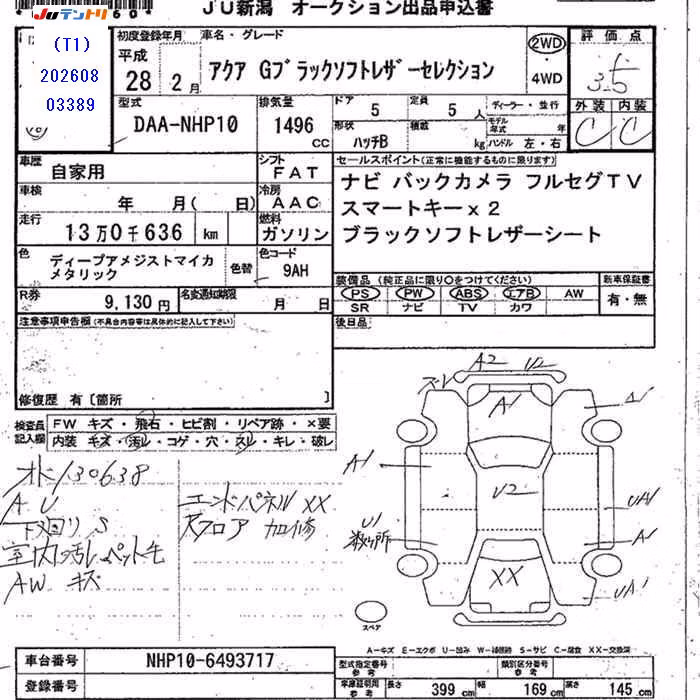 JUテントリ
60
JU新潟 オークション出品申込書
(T1)
202608
03389
初度登録年月
平成
28 2月
車名・グレード
アクア Gブラックソフトレザーセレクション
2WD
4WD
評価点
3.5
型式
DAA-NHP10
排気量
1496
cc
ドア 5
定員 5人
形状
ハッチB
積載 kg
ディーラー・並行
モデル年式 年
ハンドル 左・右
外装 内装
C C
車歴
自家用
シフト
FAT
車検 年 月( 日)
冷房
AAC
走行
13万0千636 km
燃料
ガソリン
色
ディープアメジストマイカ
メタリック
色替
色コード
9AH
R券
9,130円
名変通知期限 月 日
セールスポイント(正常に機能するものに限ります)
ナビ バックカメラ フルセグTV
スマートキーx2
ブラックソフトレザーシート
装備品 (純正品に限り○をつけてください)
PS PW ABS エアB AW
SR ナビ TV カワ
新車保証書
有・無
後日品
注意事項申告欄(不具合内容等は具体的に記入して下さい)
修復歴 有〔箇所 〕
検査員記入欄
FW キズ・飛石・ヒビ割・リペア跡・×要
内装 キズ・汚レ・コゲ・穴・スレ・キレ・破レ
オド130638
A U
下廻りS
室内汚レペット毛
AW キズ
エンドパネルXX
Rフロア 加修
A2 U2
ズレ
A1
A1
A1
U2
UA1
U1
数ヶ所
A1
XX
UA1
スペア
A-キズ E-エクボ U-凹み W-補修跡 S-サビ C-腐食 XX-交換済
車台番号
NHP10-6493717
登録番号
型式指定番号
参考
類別区分番号
参考
車庫証明用
参考
長さ 399cm
幅 169cm
高さ 145cm